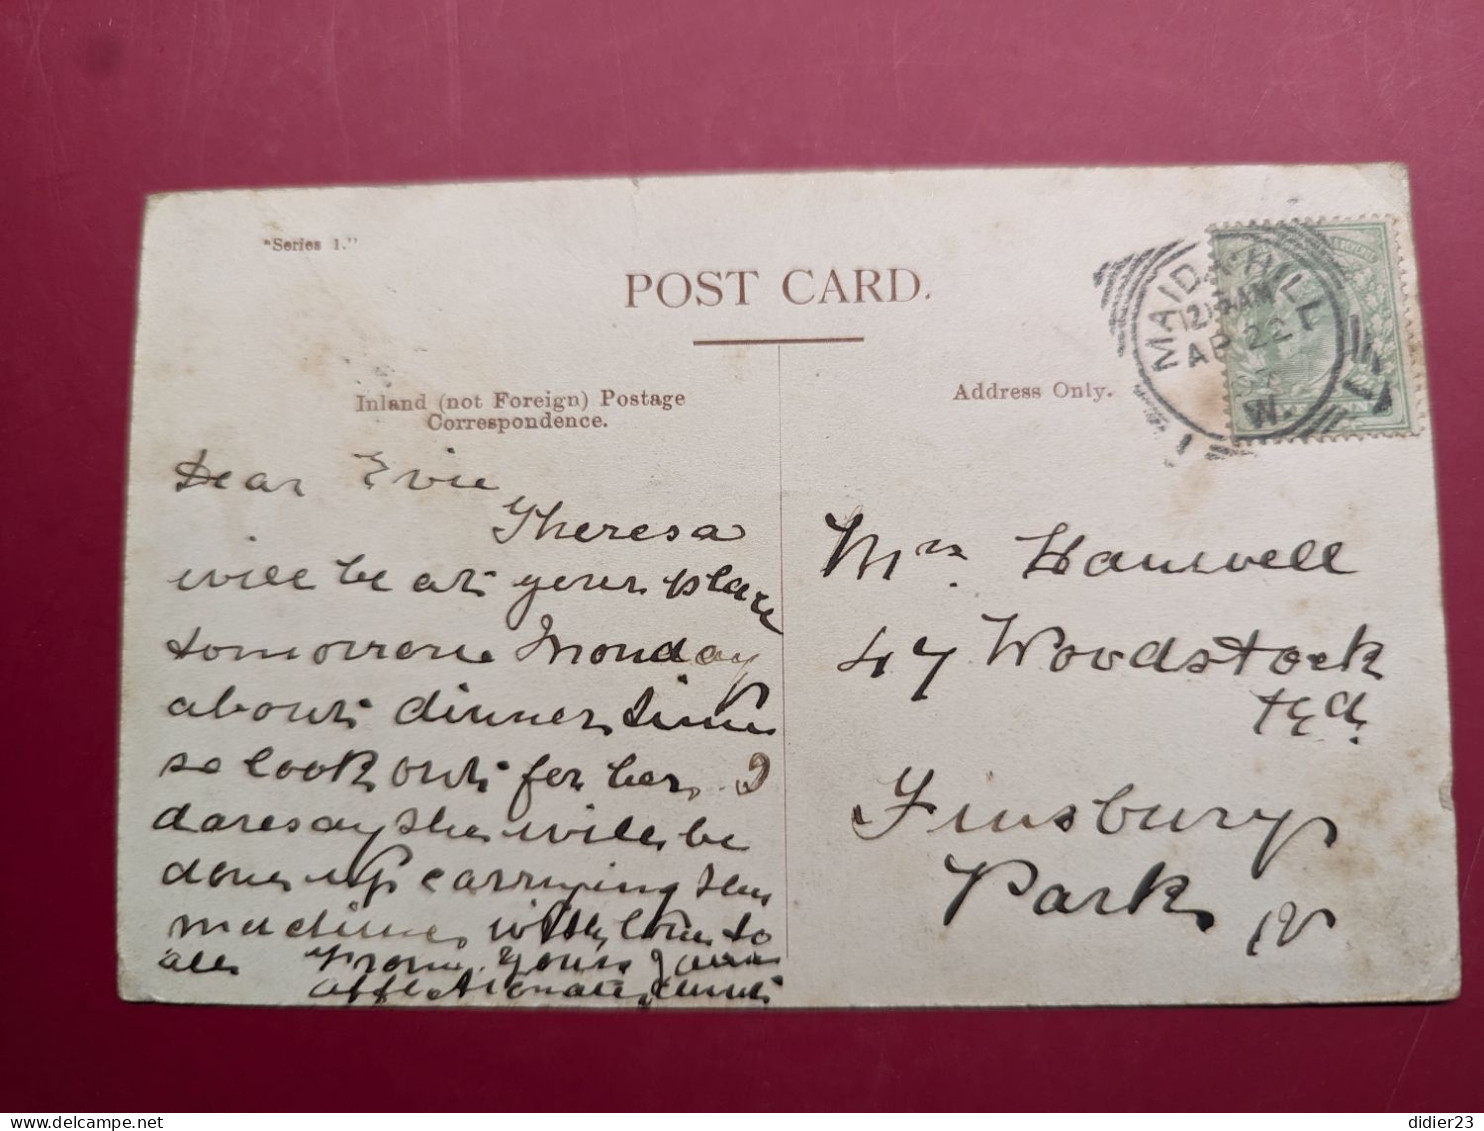 "Series 1."
POST CARD.
Inland (not Foreign) Postage
Correspondence.
Address Only.
MAIDA HILL
AP 22
W.
Dear Evie
Theresa
will be at your place
tomorrow Monday
about dinner time
so look out for her. I
daresay she will be
done up carrying the
machine with love to
all From Yours
affectionate
Mrs Hanwell
47 Woodstock
Rd.
Finsbury
Park N
didier23